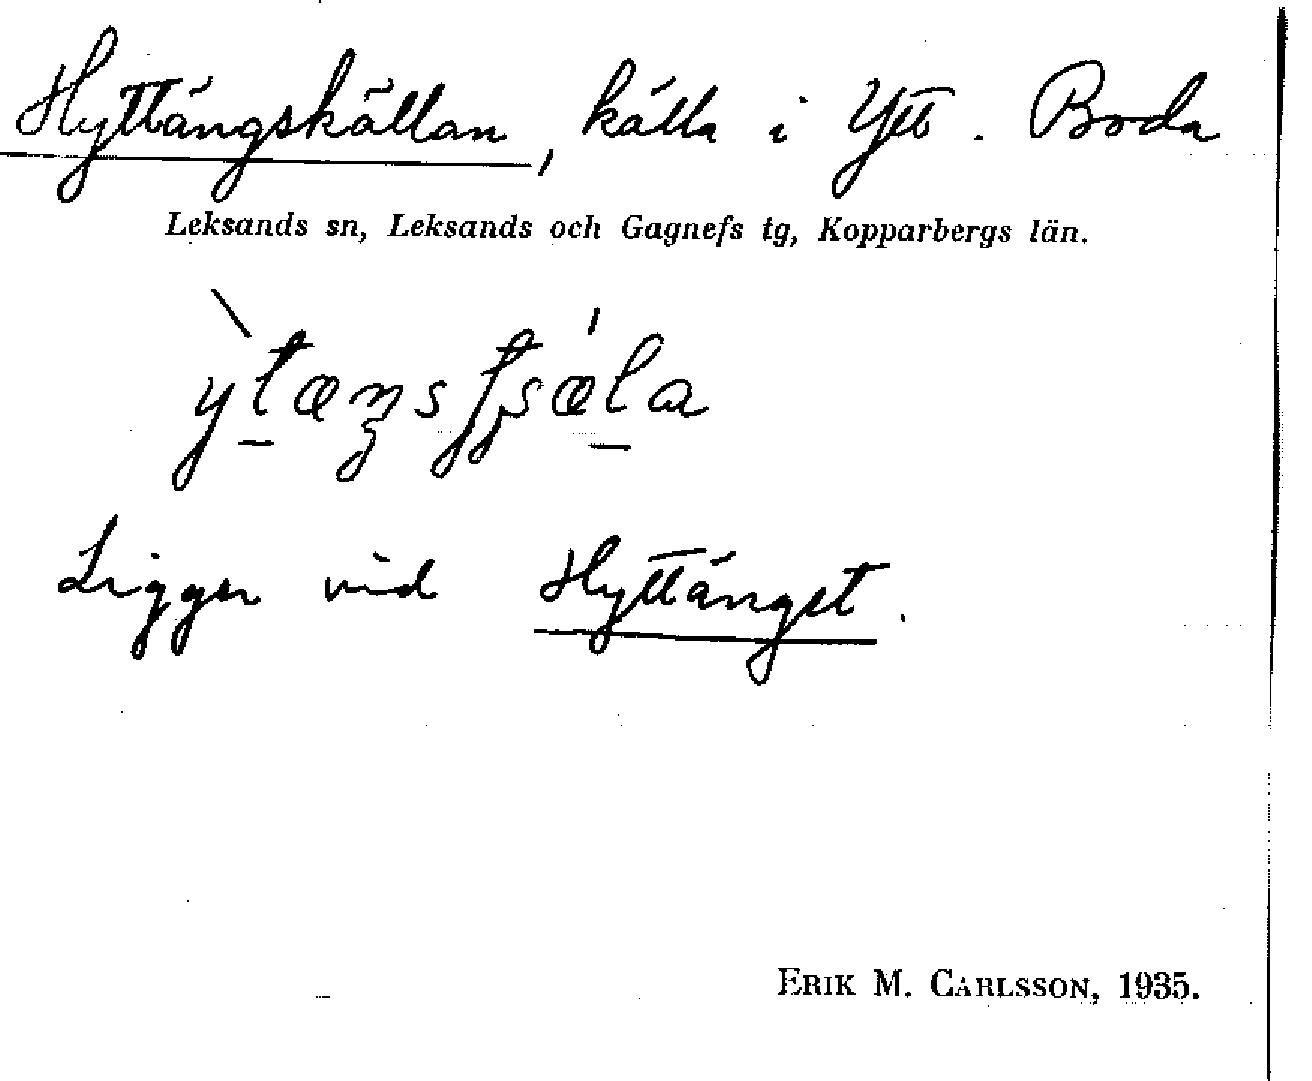 Hyttängskällan, källa i Ytt. Boda
Leksands sn, Leksands och Gagnefs tg, Kopparbergs län.
Ligger vid Hyttängst.
ERIK M. CARLSSON, 1935.